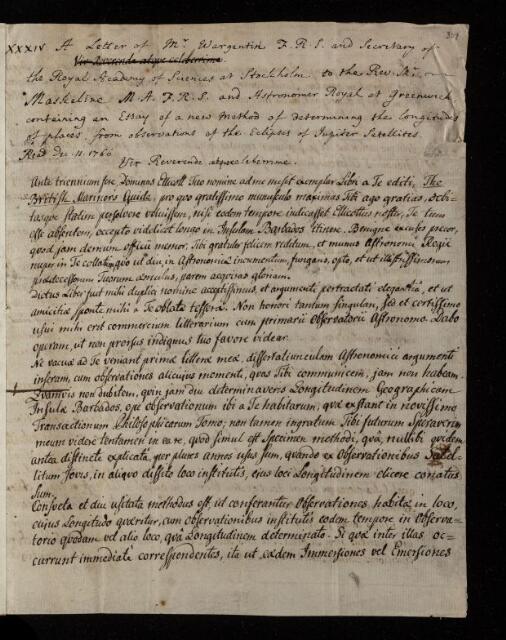 XXXIV A Letter of Mr. Wargentin F.R.S. and Secretary of
Vir Reverende atque celeberrime
the Royal Academy of Sciences at Stockholm to the Rev. Mr.
Maskeline M.A. F.R.S. and Astronomer Royal at Greenwich
containing an Essay of a new Method of Determining the longitudes
of places, from observations of the Eclipses of Jupiter Satellites.
Read Dec. 11. 1766
Vir Reverende atque celeberrime.
Ante triennium fere Dominus Ellicott Tuo nomine ad me misit exemplar Libri a Te editi, The
British Mariners Guide, pro quo gratissimo munusculo maximas Tibi ago gratias, debi-
tasque statim persolvere voluissem, nisi eodem tempore indicasset Ellicotius noster, Te tum
esse absentem, occepto videlicet longo in Insulam Barbados itinere. Benigne excuses precor,
quod jam demum officii memor, Tibi gratuler felicem reditum, et munus Astronomi Regii
nuper in Te collatum, quo ut diu, in Astronomiæ incrementum, fungaris, opto, et ut illustrissimorum
prædecessorum Tuorum æmulus, parem acquiras gloriam.
Dictus Liber fuit mihi duplici nomine acceptissimus, et argumenti pertractati elegantia, et ut
amicitiæ sponte mihi a Te oblatæ tessera. Non honori tantum singulari, sed et certissimo
usui mihi erit commercium litterarium cum primarii Observatorii Astronomo. Dabo
operam, ut non prorsus indignus tuo favore videar.
Ne vacuæ ad Te veniant primæ litteræ meæ, dissertatiunculam Astronomici argumenti
inseram, cum observationes alicujus momenti, quas Tibi communicem, jam non habeam.
Quamvis non dubitem, quin jam diu determinaveris Longitudinem Geographicam
Insulæ Barbados, ope observationum ibi a Te habitarum, quæ exstant in novissimo
Transactionum Philosophicarum Tomo; non tamen ingratum Tibi futurum speraverim
meum videre tentamen in ea re, quod simul est Specimen methodi, qua, nullibi quidem
antea distincte explicata, per plures annos usus sum, quando ex Observationibus Satel-
litum Jovis, in aliquo dissito loco institutis, ejus loci Longitudinem elicere conatus
sum.
Consueta et diu usitata methodus est, ut conferantur Observationes, habitæ in loco,
cujus Longitudo quæritur, cum observationibus institutis eodem tempore in Observa-
torio quodam vel alio loco, qua Longitudinem determinato. Si quæ inter illas oc-
currunt immediate correspondentes, ita ut eædem Immersiones vel Emersiones